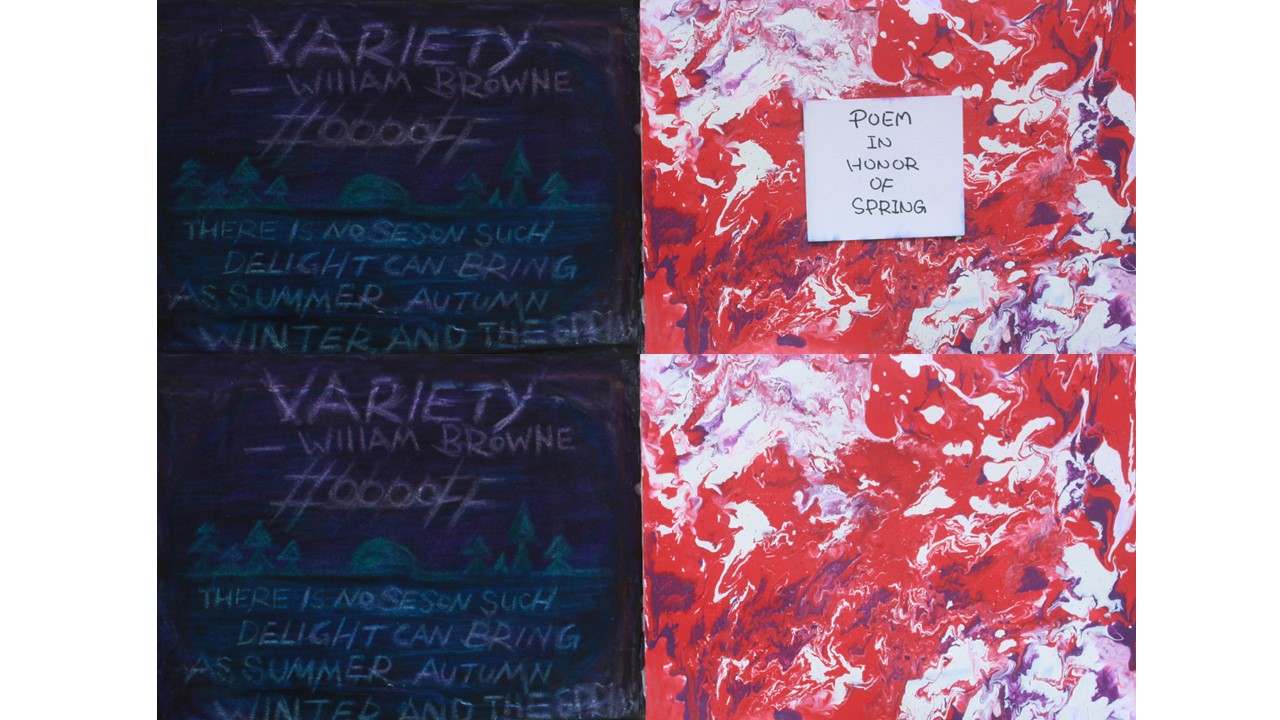 VARIETY
— WIllIAM BROWNE
#0000ff
THERE IS NO SESON SUCH
DELIGHT CAN BRING
AS SUMMER AUTUMN
WINTER AND THE SPRIN
POEM
IN
HONOR
OF
SPRING
VARIETY
— WIllIAM BROWNE
#0000ff
THERE IS NO SESON SUCH
DELIGHT CAN BRING
AS SUMMER AUTUMN
WINTER AND THE SPRIN